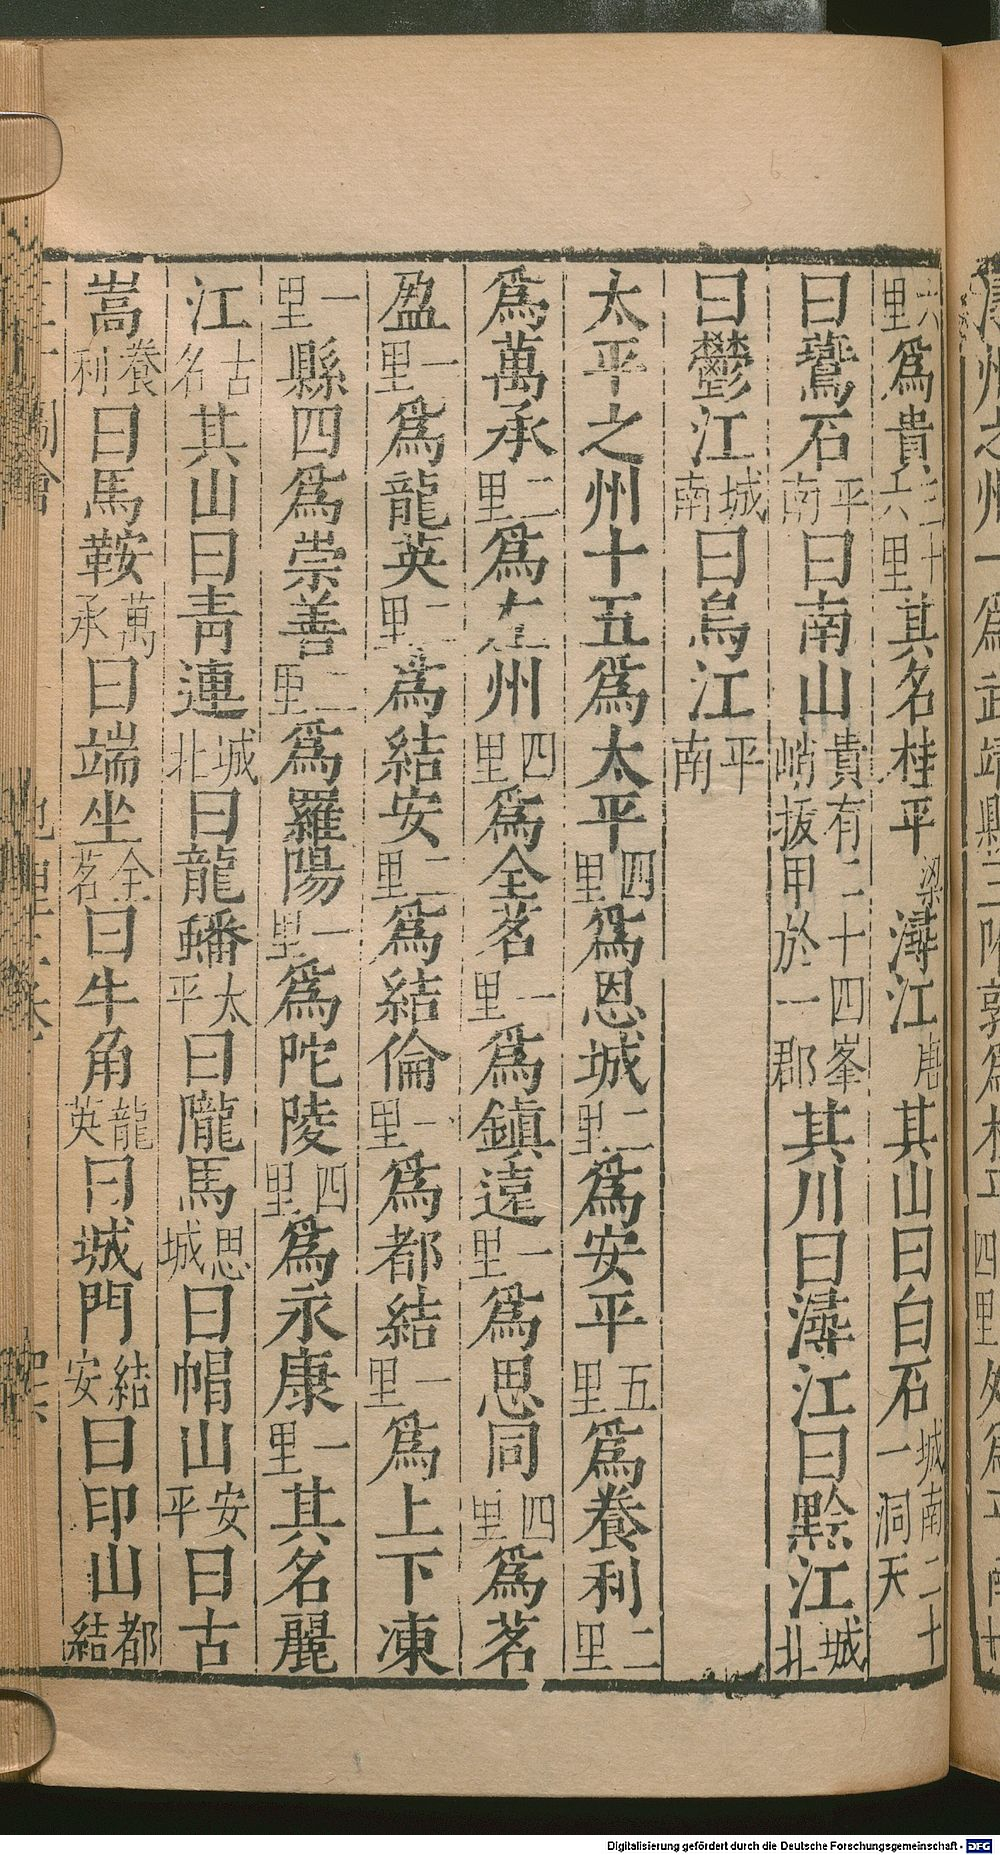 六里爲貴三十六里其名桂平梁潯江唐其山曰白石城南二十一洞天
曰鵞石平南曰南山貴有二十四峯峭拔甲於一郡其川曰潯江曰黔江城北
曰鬱江城南曰烏江平南
太平之州十五爲太平四里爲恩城二里爲安平五里爲養利二里
爲萬承二里爲左州四里爲全茗一里爲鎮遠一里爲思同四里爲茗
盈一里爲龍英二里爲結安二里爲結倫一里爲都結一里爲上下凍
一里縣四爲崇善二里爲羅陽一里爲陀陵四里爲永康一里其名麗
江古名其山曰青連城北曰龍蟠太平曰隴馬思城曰帽山安平曰古
嵩養利曰馬鞍萬承曰端坐全茗曰牛角龍英曰城門結安曰印山都結
Digitalisierung gefördert durch die Deutsche Forschungsgemeinschaft - DFG